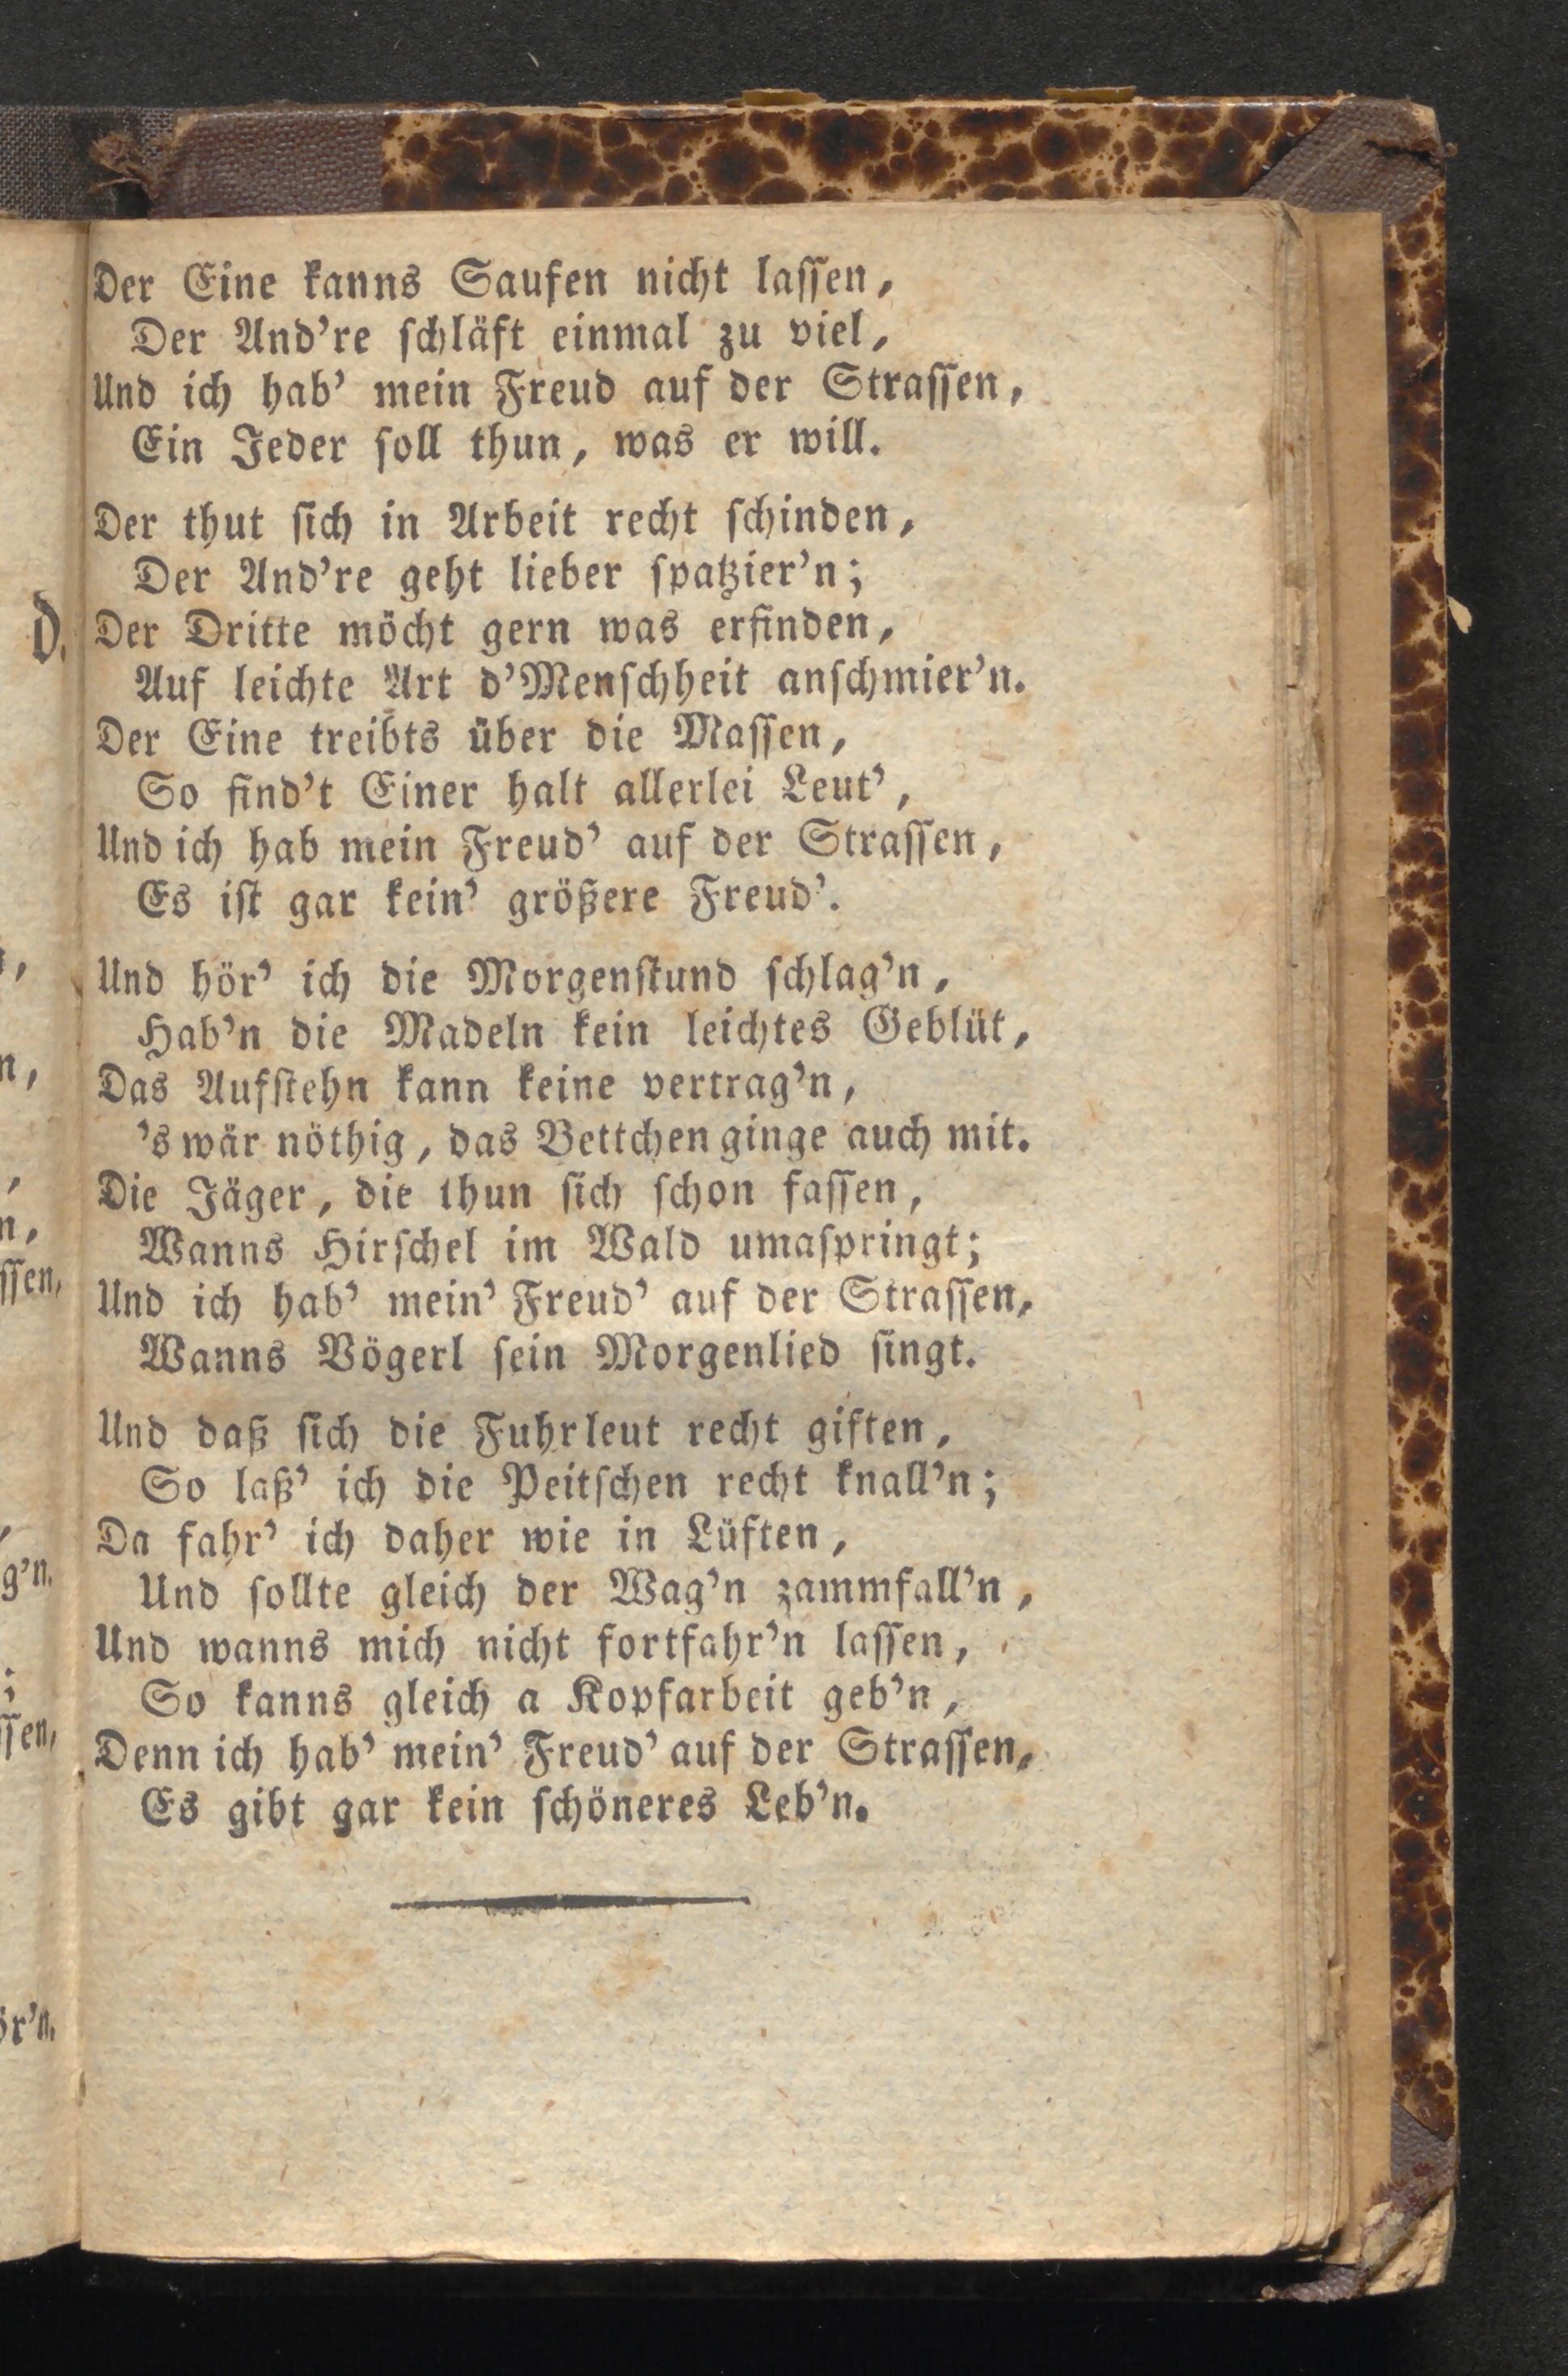 Der Eine kanns Saufen nicht laſſen,
Der And’re ſchläft einmal zu viel,
Und ich hab’ mein Freud auf der Straſſen,
Ein Jeder ſoll thun, was er will.
Der thut ſich in Arbeit recht ſchinden,
Der And’re geht lieber ſpatzier’n;
Der Dritte möcht gern was erfinden,
Auf leichte Art d’Menſchheit anſchmier’n.
Der Eine treibts über die Maſſen,
So find’t Einer halt allerlei Leut’,
Und ich hab mein Freud’ auf der Straſſen,
Es iſt gar kein’ größere Freud’.
Und hör’ ich die Morgenſtund ſchlag’n,
Hab’n die Madeln kein leichtes Geblüt,
Das Aufſtehn kann keine vertrag’n,
’s wär nöthig, das Bettchen ginge auch mit.
Die Jäger, die thun ſich ſchon faſſen,
Wanns Hirſchel im Wald umaſpringt;
Und ich hab’ mein’ Freud’ auf der Straſſen,
Wanns Vögerl ſein Morgenlied ſingt.
Und daß ſich die Fuhrleut recht giften,
So laß’ ich die Peitſchen recht knall’n;
Da fahr’ ich daher wie in Lüften,
Und ſollte gleich der Wag’n zammfall’n,
Und wanns mich nicht fortfahr’n laſſen,
So kanns gleich a Kopfarbeit geb’n,
Denn ich hab’ mein’ Freud’ auf der Straſſen,
Es gibt gar kein ſchöneres Leb’n.